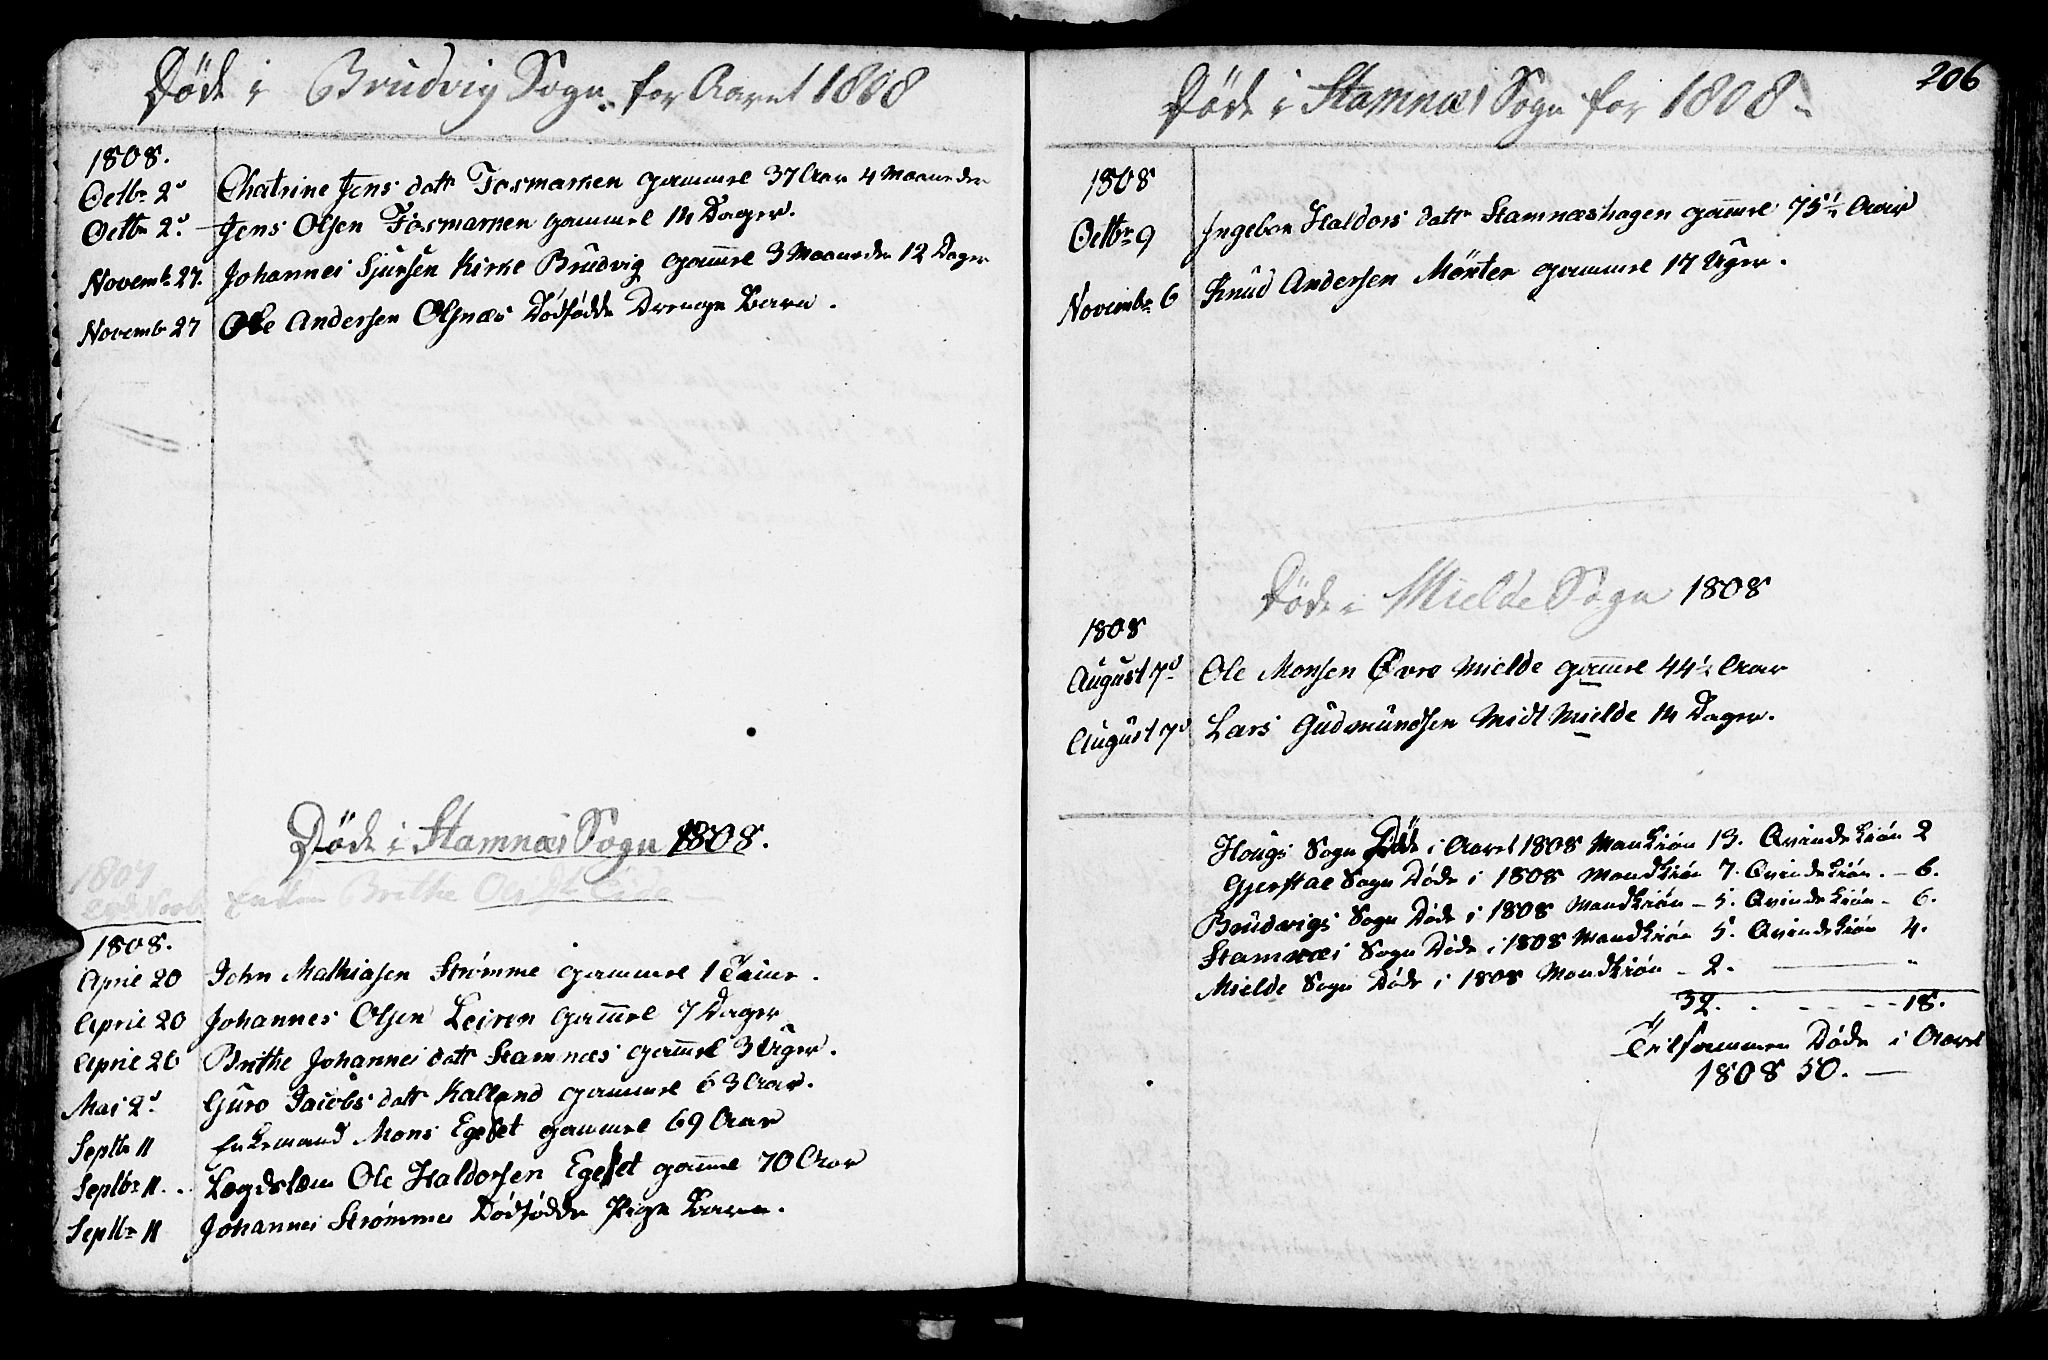 Døde i Brudvig Sogn for Aaret 1808
1808.
Octbr 2d Chatrine Jens datt Fosmarken gammel 37 Aar 4 Maaneder
Octbr 2d Jens Olsen Fosmarken gammel 14 Dager.
Novemb. 27. Johannes Sjursen Kirke Brudvig gammel 3 Maaneder 12 Dager
Novemb 27 Ole Andersen Olsnæs Dødfødde Drenge Barn.
Døde i Stamnæs Sogn 1808.
1807
Enken Brithe Eide
1808.
April 20 John Mathiasen Strømme gammel 1 Time.
April 20 Johannes Olsen Leiren gammel 7 Dager
April 26 Brithe Johannes datt Stamnæs gammel 3 Uger.
Mai 2d Guro Jacobs datt Kalland gammel 63 Aar.
Septbr 11 Enkemand Mons Egeset gammel 69 Aar
Septbr 11. Lægdslem Ole Haldorsen Egeset gamml 70 Aar
Septbr 11 Johannes Strømmes Dødfødde Pige Barn.
206
Døde i Stamnæs Sogn for 1808
1808
Octbr 9 Ingebor Haldors datt Stamnæshagen gammel 75½ Aar
Novembr 6 Knud Andersen Mørter gammel 17 Uger.
Døde i Mielde Sogn 1808
1808
August 7d Ole Monsen Øvre Mielde gammel 44½ Aar
August 7d Lars Gudmundsen Midt Mielde 14 Dager.
Hougs Sogn Døde i Aaret 1808 Mankiön 13. Qvindekiön 2
Gjerstad Sogn Døde i 1808 Mandkiön 7. Qvindekiön. - 6.
Brudvigs Sogn Døde i 1808 Mandkiön - 5. Qvindekiön - 6.
Stamnæs Sogn Døde i 1808 Mandkiön 5. Qvindekiön 4.
Mielde Sogn Døde i 1808 Mandkiön - 2. "
32. - - - - 18.
Tilsammen Døde i Aaret
1808 50. —